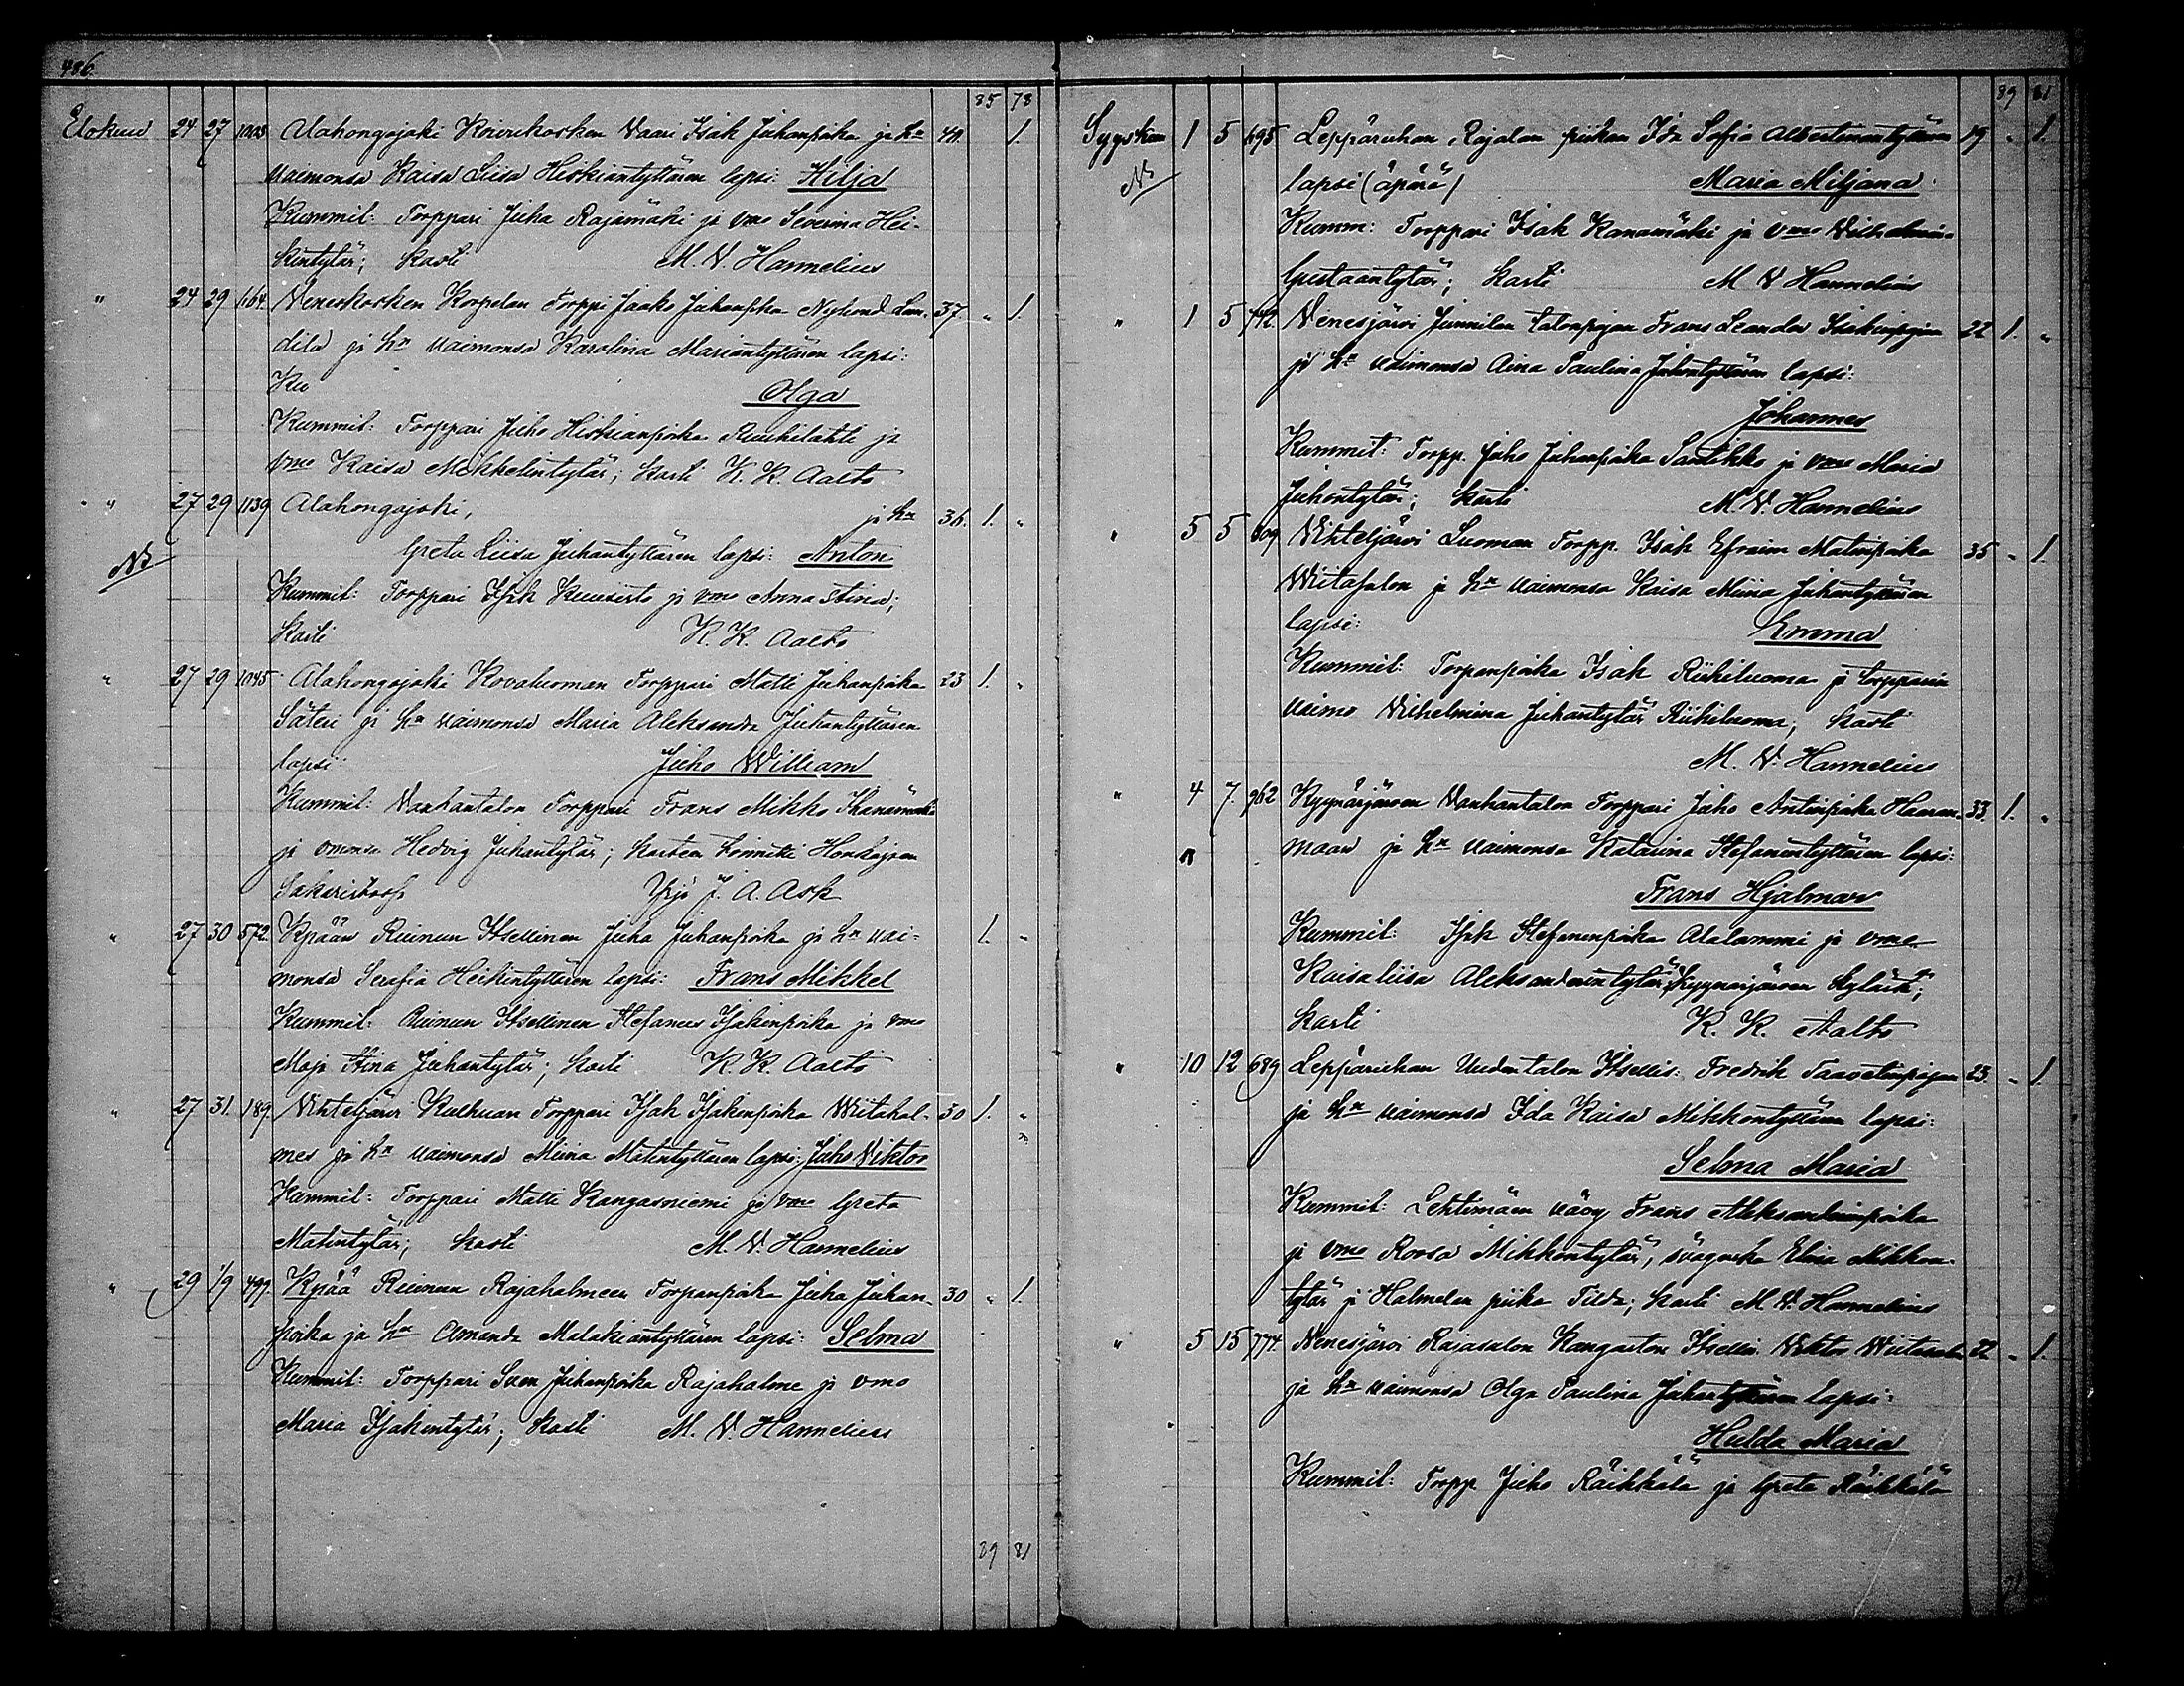 486
85 78
Elokuu 24 27 1003 Alahongojoki Koivukosken Vaari Isak Juhanpoika ja hn 44. 1.
vaimonsa Kaisa Liisa Hiskiantyttären lapsi: Hilja
Kummit: Torppari Juha Rajamäki ja vmo Severina Hei-
kintytär; kasti M. V. Hannelius
" 24 29 1164. Veneskosken Korpelan Torppi Jaako Juhanpoika Nylund 37. " 1
dila ja hn vaimonsa Karolina Mariantyttären lapsi:
Ku Olga
Kummit: Torppari Juho Hiskianpoika Ruuhilahti ja
vmo Kaisa Mikkelintytär; kasti K. K. Aalto
" 27 29 1139 Alahongojoki, ja hn 36. 1. "
Greta Liisa Juhantyttären lapsi: Anton
NB
Kummit: Torppari Isak Kuusisto ja vmo Anna Stina;
kasti K. K. Aalto
" 27 29 1045 Alahongojoki Kovaluoman Torppari Matti Juhanpoika 23 1. "
Säteri ja hn vaimonsa Maria Aleksandra Juhantyttären
lapsi: Juho William
Kummit: Vanhantalon Torppari Frans Mikko
ja vmonsa Hedvig Juhantytär; kasteen toimitti Honkajoen
Yrjö J. A. Ask
" 27 30 572. Kpään Ruinun Itsellinen Juha Juhanpoika ja hn vai- 1. "
monsa Serafia Heikintyttären lapsi: Frans Mikkel
Kummit: Ruinun Itsellinen Stefanus Isakinpoika ja vmo
Maja Stina Juhantytär; kasti K. K. Aalto
" 27 31. 189. Vihteljärvi Kulhuan Torppari Isak Isakinpoika Wiitahal- 30 1. "
mes ja hn vaimonsa Miina Matintyttären lapsi: Juho Viktor
Kummit: Torppari Matti Kangasniemi ja vmo Greta
Matintytär; kasti M. V. Hannelius
" 29 1/9 499. Kpää Ruinun Rajahalmeen Torpanpoika Juha Juhan- 30 " 1.
poika ja hn Amanda Malakiantyttären lapsi: Selma
Kummit: Torppari Sven Juhanpoika Rajahalme ja vmo
Maria Isakintytär; kasti M. V. Hannelius
89 81
89 81
Syyskuu 1 5 695 Leppäruhan Rajalan piikan Ida Sofia Albertinantyttären 19 " 1.
NB lapsi (äpärä) Maria Miljana
Kumm: Torppari Isak Kanamäki ja vmo Vilhelmin-
Gustaantytär; kasti M V Hannelius
" 1 5 742. Venesjärvi Junnilan talonpojan Frans Leander Isakinpojan 22 1. "
ja hn vaimonsa Aina Paulina Juhontyttären lapsi:
Johannes
Kummit: Torpp. Juho Juhanpoika Santikko ja vmo Maria
Juhontytär; kasti M. V. Hannelius
" 5 5 809 Vihteljärvi Luoman Torpp. Isak Efraim Matinpoika 35 " 1.
Wiitasalon ja hn vaimonsa Kaisa Miina Juhantyttären
lapsi: Emma
Kummit: Torpanpoika Isak Riihiluoma ja torpparin
vaimo Vilhelmina Juhantytär Riihiluoma; kasti
M. V. Hannelius
" 4 7. 962 Kyynärjärven Vanhantalon Torppari Juho Antinpoika Haaran- 33. 1. "
maan ja hn vaimonsa Katarina Stefanintyttären lapsi:
Frans Hjalmar
Kummit: Isak Stefaninpoika Alalammi ja vmo
Kaisa liisa Aleksanderintytär, Kyynärjärven kylästä;
kasti K. K. Aalto
" 10 12 689 Leppäruhan Uudentalon Itsellis: Fredrik Taavetinpojan 23. " 1.
ja hn vaimonsa Ida Kaisa Mikkontyttären lapsi:
Selma Maria
Kummit: Lehtimäen vävy Frans Aleksanderinpoika
ja vmo Roosa Mikkontytär, Elina Mikkon-
tytär ja Halmelan piika Tilda; kasti M. V. Hannelius
" 5 15 774. Venesjärvi Rajasalon Kangaston Itsellis. Viktor Wiitasalo 22 " 1.
ja hn vaimonsa Olga Paulina Juhantyttären lapsi:
Hulda Maria
Kummit: Torpp Juho Räikkälä ja Greta Räikkälä